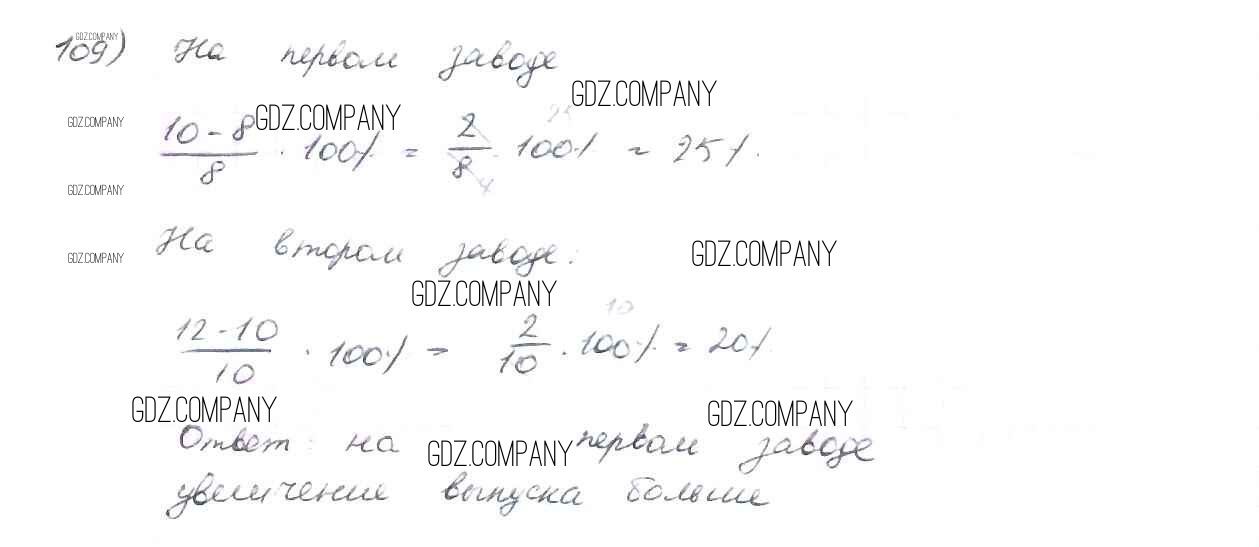 GDZ.COMPANY
109) На первом заводе
GDZ.COMPANY
GDZ.COMPANY
GDZ.COMPANY
10-8/8 · 100% = 2/8 · 100% = 25%.
25
4
GDZ.COMPANY
На втором заводе:
GDZ.COMPANY
GDZ.COMPANY
GDZ.COMPANY
10
12-10/10 · 100% = 2/10 · 100% = 20%
GDZ.COMPANY
GDZ.COMPANY
Ответ: на первом заводе
GDZ.COMPANY
увеличение выпуска больше